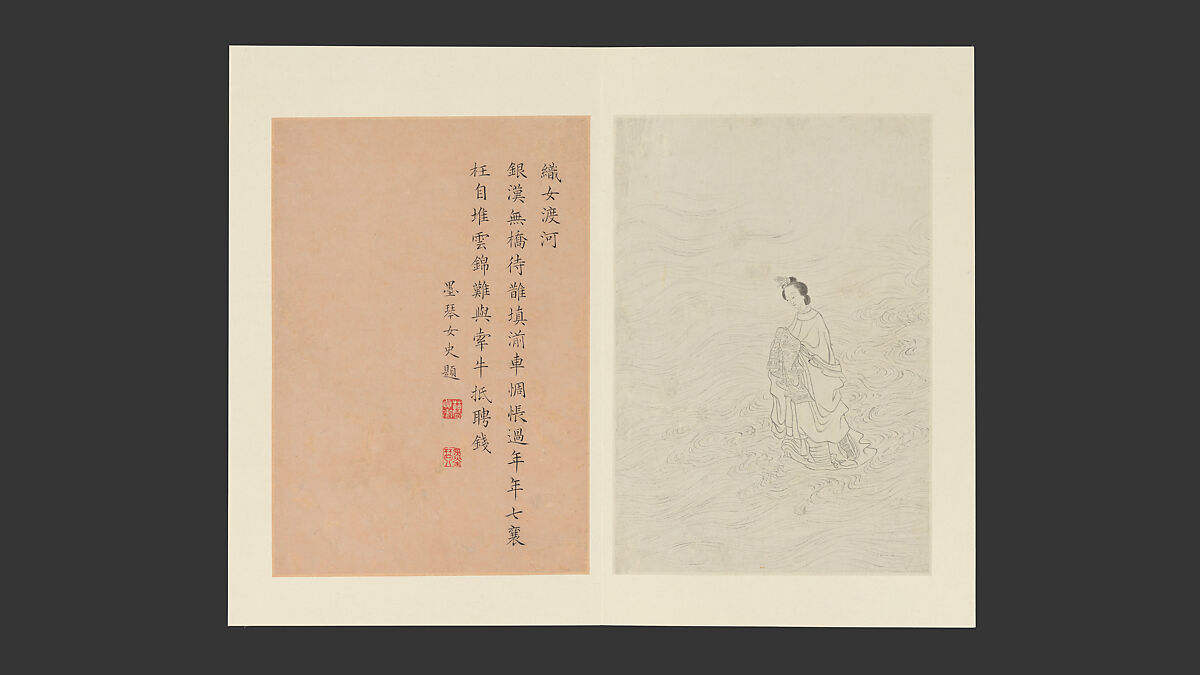 織女渡河
銀漢無橋待䧿填湔車惆悵過年年七襄
枉自堆雲錦難與牽牛抵聘錢
墨琴女史題